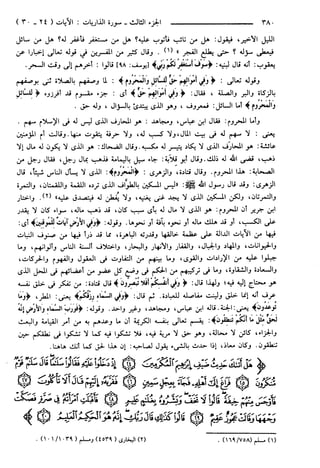 ٣٨٠ الجزء الثالث ـ سورة الذاريات : الآيات ( ٢٤ - ٣٠ )
الليل الأخير، فيقول: هل من تائب فأتوب عليه؟ هل من مستغفر فأغفر له؟ هل من سائل
فيعطى سؤله ؟ حتى يطلع الفجر » (١) . وقال كثير من المفسرين في قوله تعالى إخبارا عن
يعقوب: أنه قال لبنيه: ﴿ سوف أستغفر لكم ربي ﴾ [يوسف: ٩٨] قالوا : أخرهم إلى وقت السحر.
وقوله تعالى : ﴿ وفي أموالهم حق للسائل والمحروم ﴾ : لما وصفهم بالصلاة ثنى بوصفهم
بالزكاة والبر والصلة ، فقال: ﴿ وفي أموالهم حق ﴾ أي : جزء مقسوم قد أفرزوه ﴿ للسائل
والمحروم ﴾ أما السائل: فمعروف ، وهو الذي يبتدئ بالسؤال ، وله حق .
وأما المحروم: فقال ابن عباس، ومجاهد : هو المحارف الذي ليس له في الإسلام سهم .
يعني : لا سهم له في بيت المال،ولا كسب له، ولا حرفة يتقوت منها. وقالت أم المؤمنين
عائشة: هو المحارف الذي لا يكاد يتيسر له مكسبه. وقال الضحاك: هو الذي لا يكون له مال إلا
ذهب، قضى الله له ذلك. وقال أبو قلابة: جاء سيل باليمامة فذهب بمال رجل، فقال رجل من
الصحابة: هذا المحروم. وقال قتادة، والزهري : ﴿ المحروم ﴾: الذي لا يسأل الناس شيئًا، قال
الزهري: وقد قال رسول الله ﷺ: «ليس المسكين بالطواف الذي ترده اللقمة واللقمتان، والتمرة
والتمرتان، ولكن المسكين الذي لا يجد غنى يغنيه، ولا يُفطن له فيتصدق عليه» (٢). واختار
ابن جرير أن المحروم: هو الذي لا مال له بأي سبب كان، قد ذهب ماله، سواء كان لا يقدر
على الكسب، أو قد هلك ماله أو نحوه بآفة أو نحوها. وقوله: ﴿ وفي الأرض آيات للموقنين ﴾ أي:
فيها من الآيات الدالة على عظمة خالقها وقدرته الباهرة، مما قد ذرأ فيها من صنوف النبات
والحيوانات، والمهاد والجبال، والقفار والأنهار والبحار، واختلاف ألسنة الناس وألوانهم، وما
جبلوا عليه من الإرادات والقوى، وما بينهم من التفاوت في العقول والفهوم والحركات،
والسعادة والشقاوة، وما في تركيبهم من الحكم في وضع كل عضو من أعضائهم في المحل الذي
هو محتاج إليه فيه، ولهذا قال: ﴿ وفي أنفسكم أفلا تبصرون ﴾ قال قتادة: من تفكر في خلق نفسه
عرف أنه إنما خلق ولينت مفاصله للعبادة. ثم قال: ﴿ وفي السماء رزقكم ﴾ يعني: المطر، ﴿ وما
توعدون ﴾ يعني: الجنة. قاله ابن عباس، ومجاهد، وغير واحد. وقوله: ﴿ فورب السماء والأرض إنه
لحق مثل ما أنكم تنطقون ﴾: يقسم تعالى بنفسه الكريمة أن ما وعدهم به من أمر القيامة والبعث
والجزاء، كائن لا محالة، وهو حق لا مرية فيه، فلا تشكوا فيه كما لا تشكوا في نطقكم حين
تنطقون. وكان معاذ، إذا حدث بالشيء يقول لصاحبه: إن هذا لحق كما أنك هاهنا.
هل أتاك حديث ضيف إبراهيم المكرمين إذ دخلوا عليه فقالوا سلاما قال سلام قوم
منكرون فراغ إلى أهله فجاء بعجل سمين فقربه إليهم قال ألا تأكلون
فأوجس منهم خيفة قالوا لا تخف وبشروه بغلام عليم فأقبلت امرأته في صرة فصكت
وجهها وقالت عجوز عقيم قالوا كذلك قال ربك إنه هو الحكيم العليم
(١) مسلم (٧٥٨ / ١٦٩) . (٢) البخاري ( ٤٥٣٩ ) ومسلم ( ١٠٣٩ / ١٠١ ) .